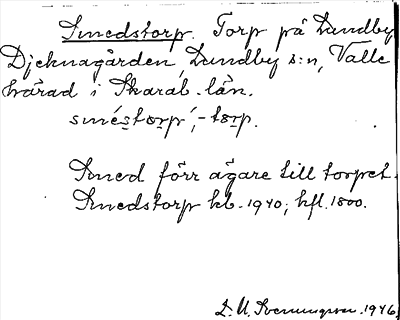 Smedstorp. Torp på Lundby
Djeknagården, Lundby s:n, Valle
härad i Skarab. län.
sméstorp', -torp.
Smed förr ägare till torpet.
Smedstorp kb. 1940; hfl. 1800.
D. A. Svenungsson. 1946.